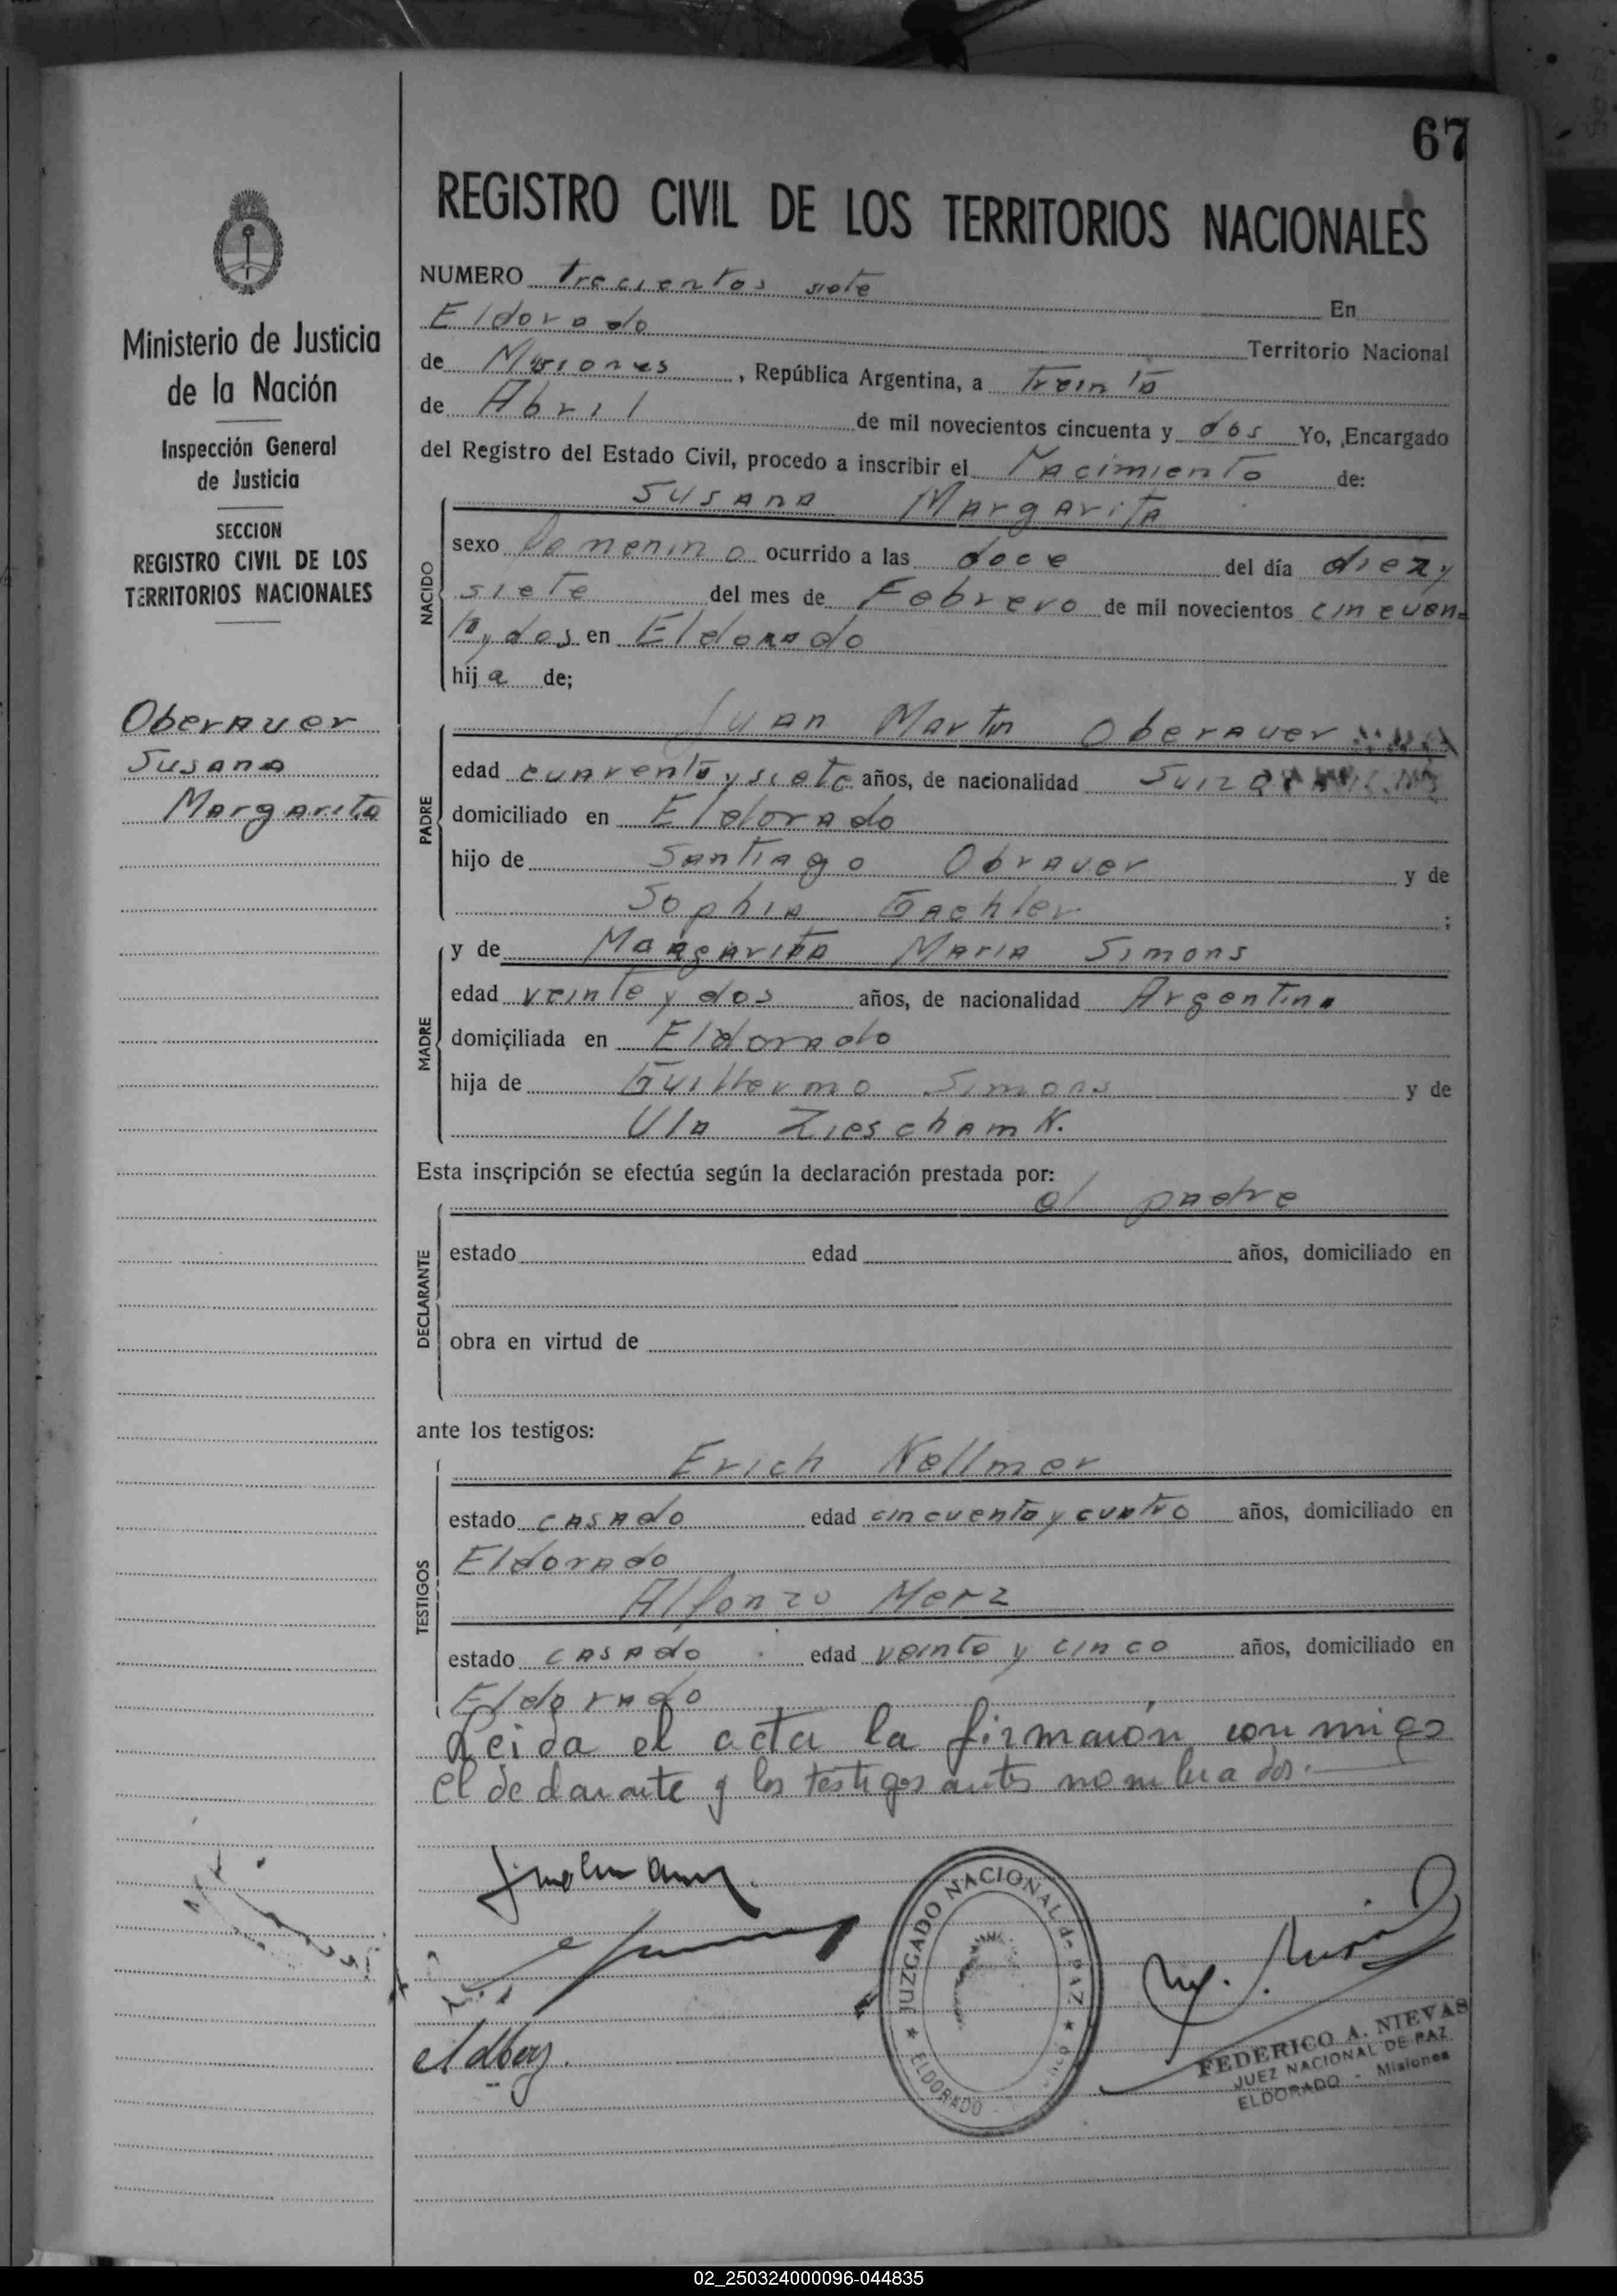 67
REGISTRO CIVIL DE LOS TERRITORIOS NACIONALES
Ministerio de Justicia
de la Nación
Inspección General
de Justicia
SECCION
REGISTRO CIVIL DE LOS
TERRITORIOS NACIONALES
Oberauer
Susana
Margarita
NUMERO trecientos siete En
Eldorado Territorio Nacional
de Misiones, República Argentina, a treinta
de Abril de mil novecientos cincuenta y dos Yo, Encargado
del Registro del Estado Civil, procedo a inscribir el Nacimiento de:
NACIDO
Susana Margarita
sexo femenino ocurrido a las doce del día diez y
siete del mes de Febrero de mil novecientos cincuen=
ta y dos en Eldorado
hija de;
PADRE
Juan Martin Oberauer
edad cuarenta y siete años, de nacionalidad Suiza
domiciliado en Eldorado
hijo de Santiago Obrauer y de
Sophia Gaehler ;
MADRE
y de Margarita Maria Simons
edad veinte y dos años, de nacionalidad Argentina
domiciliada en Eldorado
hija de Guillermo Simons y de
Ula Zieschamk.
Esta inscripción se efectúa según la declaración prestada por:
DECLARANTE
el padre
estado edad años, domiciliado en
obra en virtud de
ante los testigos:
TESTIGOS
Erich Kellmer
estado casado edad cincuenta y cuatro años, domiciliado en
Eldorado
Alfonzo Merz
estado casado edad veinte y cinco años, domiciliado en
Eldorado
Leida el acta la firmaron conmigo
el declarante y los testigos antes nombrados.
JUZGADO NACIONAL de PAZ
ELDORADO
FEDERICO A. NIEVAS
JUEZ NACIONAL DE PAZ
ELDORADO - Misiones
02_250324000096-044835